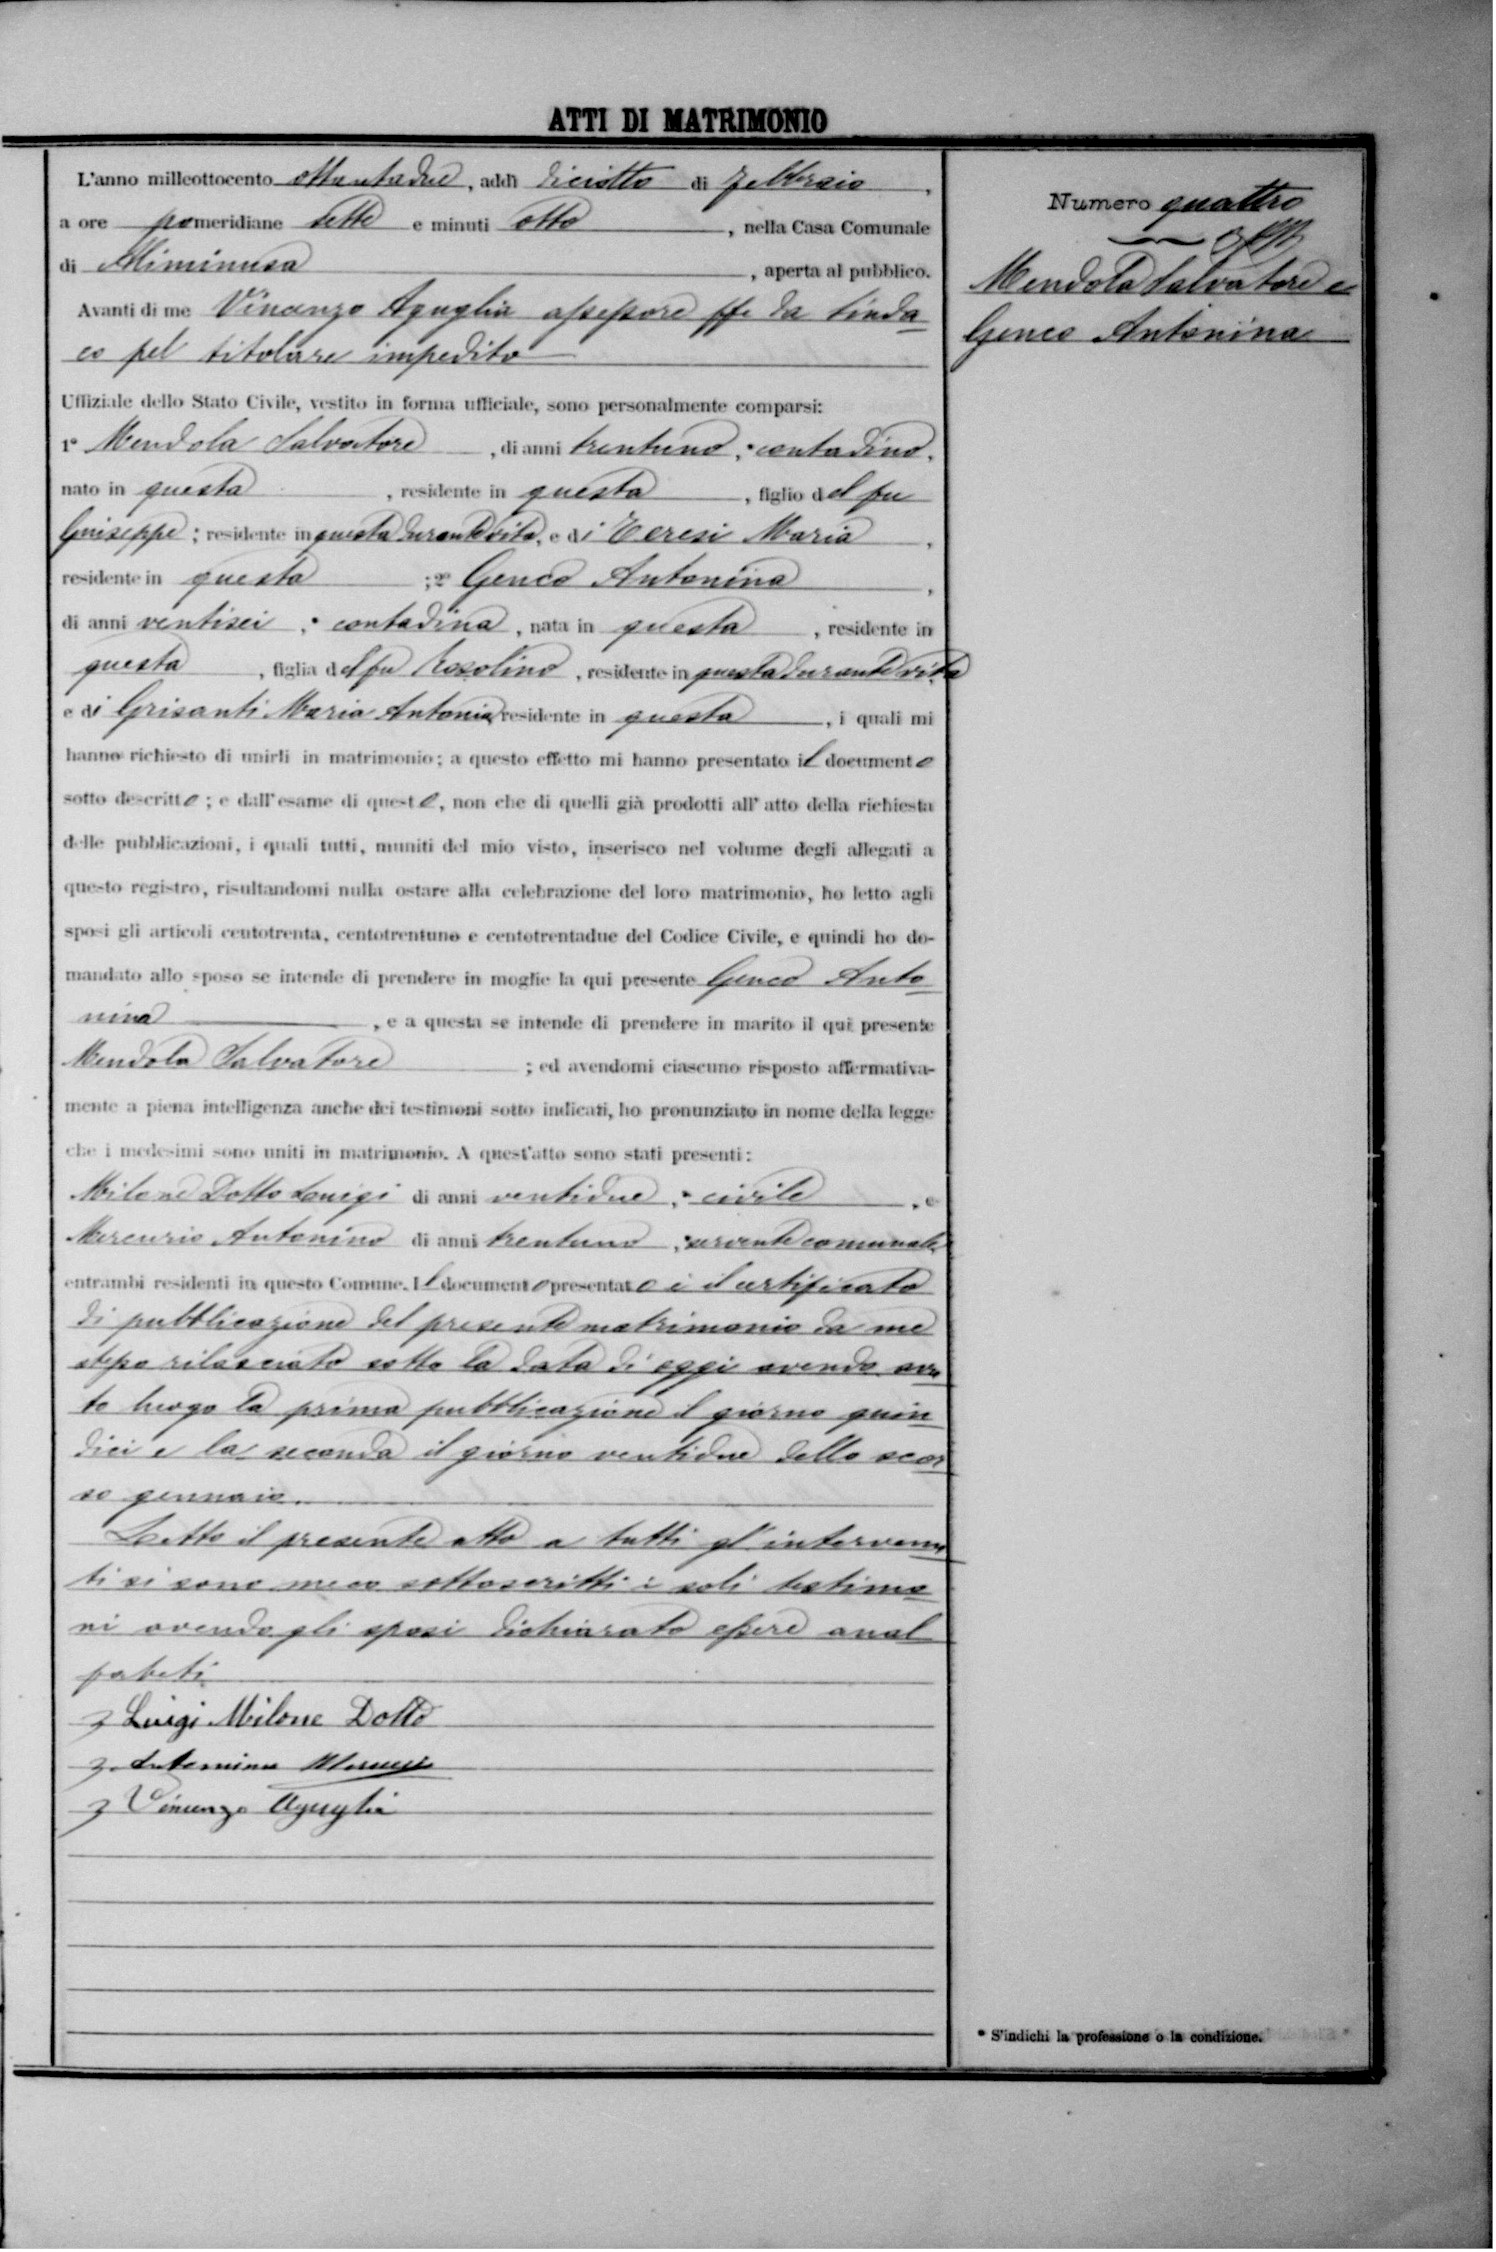 ATTI DI MATRIMONIO
L'anno milleottocento ottantadue, addì diciotto di Febbraio,
a ore pomeridiane sette e minuti otto, nella Casa Comunale
di Alimimusa, aperta al pubblico.
Avanti di me Vincenzo Aguglia assessore ffe da Sinda
co pel titolare impedito
Uffiziale dello Stato Civile, vestito in forma ufficiale, sono personalmente comparsi:
1° Mendola Salvatore, di anni trentuno, * contadino,
nato in questa, residente in questa, figlio del fu
Giuseppe; residente in questa durante vita, e di Teresi Maria,
residente in questa; 2° Genco Antonina,
di anni ventisei, * contadina, nata in questa, residente in
questa, figlia del fu Rosolino, residente in questa durante vita
e di Grisanti Maria Antonia, residente in questa, i quali mi
hanno richiesto di unirli in matrimonio; a questo effetto mi hanno presentato il documento
sotto descritto; e dall'esame di questo, non che di quelli già prodotti all'atto della richiesta
delle pubblicazioni, i quali tutti, muniti del mio visto, inserisco nel volume degli allegati a
questo registro, risultandomi nulla ostare alla celebrazione del loro matrimonio, ho letto agli
sposi gli articoli centotrenta, centotrentuno e centotrentadue del Codice Civile, e quindi ho do-
mandato allo sposo se intende di prendere in moglie la qui presente Genco Anto
nina, e a questa se intende di prendere in marito il qui presente
Mendola Salvatore; ed avendomi ciascuno risposto affermativa-
mente a piena intelligenza anche dei testimoni sotto indicati, ho pronunziato in nome della legge
che i medesimi sono uniti in matrimonio. A quest'atto sono stati presenti:
Milone Dotto Luigi di anni ventidue, * civile, e
Mercurio Antonino di anni trentuno, * servente comunale,
entrambi residenti in questo Comune. Il documento presentato è il certificato
di pubblicazione del presente matrimonio da me
stesso rilasciato sotto la data di oggi avendo avu
to luogo la prima pubblicazione il giorno quin
dici e la seconda il giorno ventidue dello scor
so gennaio.
Letto il presente atto a tutti gl'intervenu
ti si sono meco sottoscritti i soli testimo
ni avendo gli sposi dichiarato essere anal
fabeti
Luigi Milone Dotto
Antonino Mercurio
Vincenzo Aguglia
Numero quattro
Mendola Salvatore e
Genco Antonina
* S'indichi la professione o la condizione.